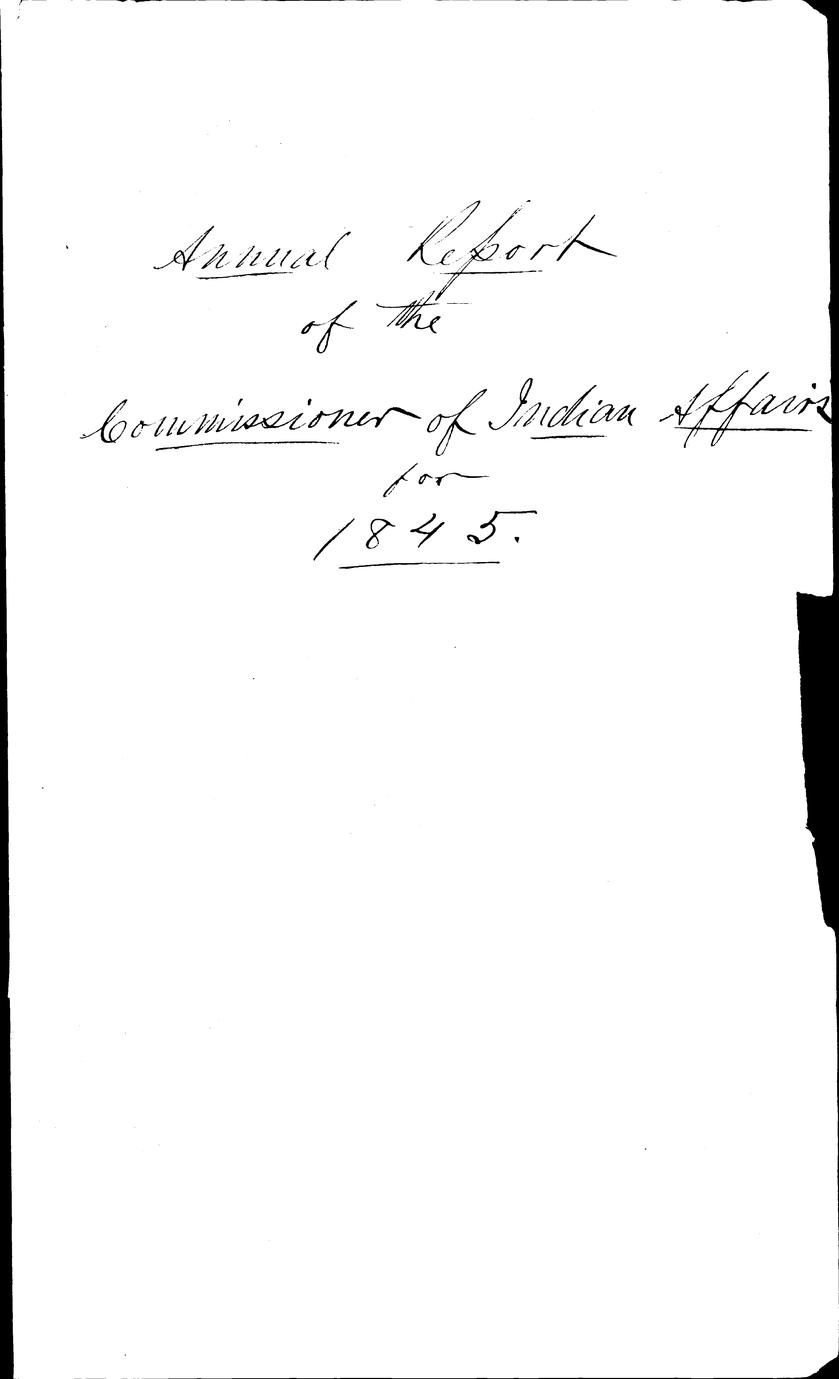 Annual Report
of the
Commissioner of Indian Affairs
for
1845.